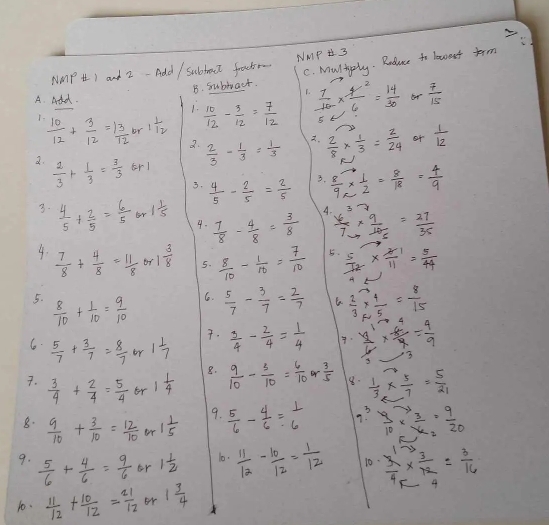 NMP # 1 and 2 - Add / Subtract fraction
A. Add.
1. 10/12 + 3/12 = 13/12 or 1 1/12
2. 2/3 + 1/3 = 3/3 or 1
3. 4/5 + 2/5 = 6/5 or 1 1/5
4. 7/8 + 4/8 = 11/8 or 1 3/8
5. 8/10 + 1/10 = 9/10
6. 5/7 + 3/7 = 8/7 or 1 1/7
7. 3/4 + 2/4 = 5/4 or 1 1/4
8. 9/10 + 3/10 = 12/10 or 1 1/5
9. 5/6 + 4/6 = 9/6 or 1 1/2
10. 11/12 + 10/12 = 21/12 or 1 3/4
B. Subtract.
1. 10/12 - 3/12 = 7/12
2. 2/3 - 1/3 = 1/3
3. 4/5 - 2/5 = 2/5
4. 7/8 - 4/8 = 3/8
5. 8/10 - 1/10 = 7/10
6. 5/7 - 3/7 = 2/7
7. 3/4 - 2/4 = 1/4
8. 9/10 - 3/10 = 6/10 or 3/5
9. 5/6 - 4/6 = 1/6
10. 11/12 - 10/12 = 1/12
NMP # 3
C. Multiply. Reduce to lowest term
1. 7/10 x 4/6 = 14/30 or 7/15
2. 2/8 x 1/3 = 2/24 or 1/12
3. 8/9 x 1/2 = 8/18 = 4/9
4. 6/7 x 9/10 = 27/35
5. 5/12 x 3/11 = 5/44
6. 2/3 x 4/5 = 8/15
7. = 4/9
8. 1/3 x 5/7 = 5/21
9. = 9/20
10. 3/4 x 3/12 = 3/16